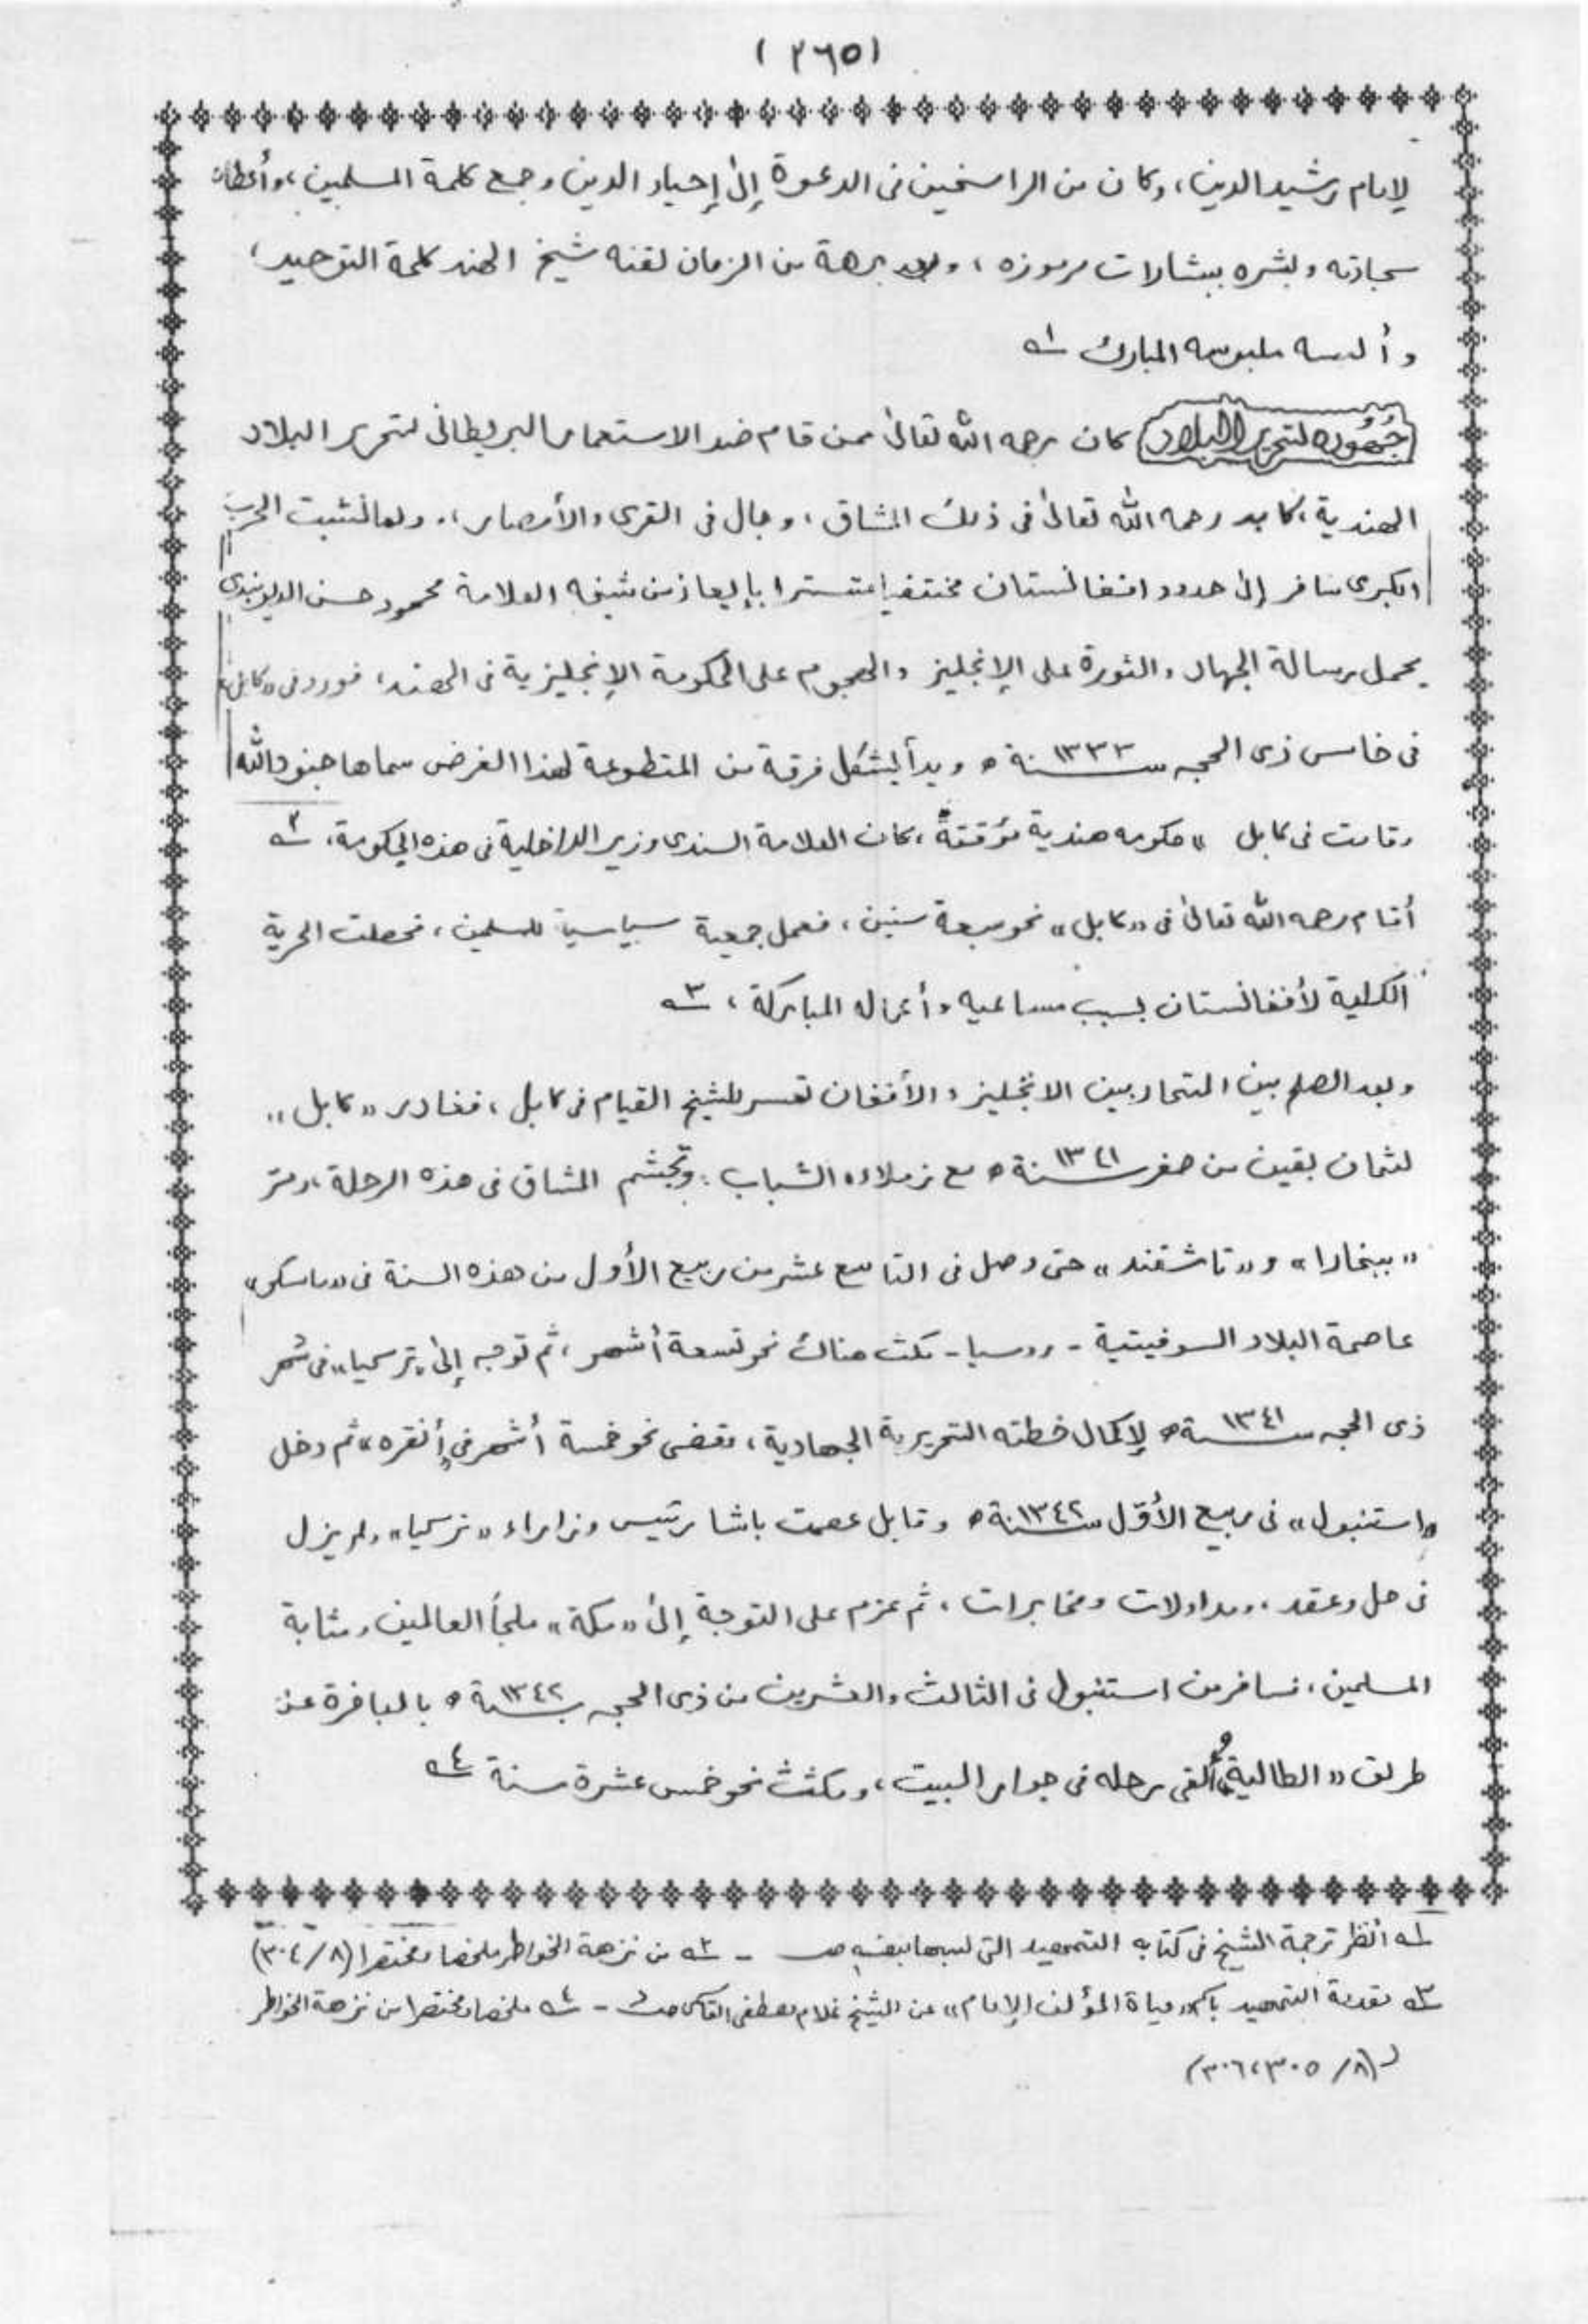 (٢٦٥)
لإمام رشيد الدين، وكان من الراسخين فى الدعوة إلى إحياء الدين وجمع كلمة المسلمين، وأعطاه
سجادته وبشره ببشارات مرموزه، وبعد برهة من الزمان لقنه شيخ الهند كلمة التوحيد،
وألبسه ملبوسه المبارك ١ـه
جُهُوده لتحرير البلاد كان رحمه الله تعالى ممن قام ضد الاستعمار البريطانى لتحرير البلاد
الهندية، كابد رحمه الله تعالى فى ذلك المشاق، وجال فى القرى والأمصار، ولما نشبت الحرب
الكبرى سافر إلى حدود افغانستان مختفيا متسترا بإيعاز من شيخه العلامة محمود حسن الديوبندى
يحمل رسالة الجهاد والثورة على الإنجليز والهجوم على الحكومة الإنجليزية فى الهند، فورد فى «كابل»
فى خامس ذى الحجه سنة ١٣٣٣ه وبدأ يشكل فرقة من المتطوعة لهذا الغرض سماها جنود الله
وقامت فى كابل «حكومه هندية مؤقتة، كان العلامة السندى وزير الداخلية فى هذه الحكومة، ٢ـه
أقام رحمه الله تعالى فى «كابل» نحو سبعة سنين، فعمل جمعية سياسية للمسلمين، فحصلت الحرية
الكلية لأفغانستان بسبب مساعيه وأعماله المباركة، ٣ـه
وبعد الصلح بين المتحاربين الانجليز والأفغان تعسر للشيخ القيام فى كابل، فغادر «كابل»
لثمان بقين من صفر سنة ١٣٤١ه مع زملاءه الشباب، وتجشم المشاق فى هذه الرحلة، ومر
«ببخارا» و«تاشقند» حتى وصل فى التاسع عشر من ربيع الأول من هذه السنة فى «ماسكو»
عاصمة البلاد السوفيتية - روسيا - مكث هناك نحو تسعة أشهر، ثم توجه إلى «تركيا» فى شهر
ذى الحجه سنة ١٣٤١ه لإكمال خطته التحريرية الجهادية، فقضى نحو خمسة أشهر فى «أنقره» ثم دخل
«استنبول» فى ربيع الأوّل سنة ١٣٤٢ه وقابل عصمت باشا رئيس وزاراء «تركيا» ولم يزل
فى حل وعقد، ومداولات ومخابرات، ثم عزم على التوجة إلى «مكة» ملجأ العالمين ومثابة
المسلمين، فسافر من استنبول فى الثالث والعشرين من ذى الحجه سنة ١٣٤٢ه بالباخرة عن
طريق «اطالية» وألقى رحله فى جوار البيت، ومكث نحو خمس عشرة سنة ٤ـه
١ـه أنظر ترجمة الشيخ فى كتابه التمهيد التى كتبها بنفسه صـ - ٢ـه من نزهة الخواطر ملخصا ومختصرا (٨/٣٠٤)
٣ـه مقدمة التمهيد باسم «حياة المؤلف الإمام» عن الشيخ غلام مصطفى القاسمى - ٤ـه ملخصا ومختصرا من نزهة الخواطر
(٨/٣٠٥، ٣٠٦)